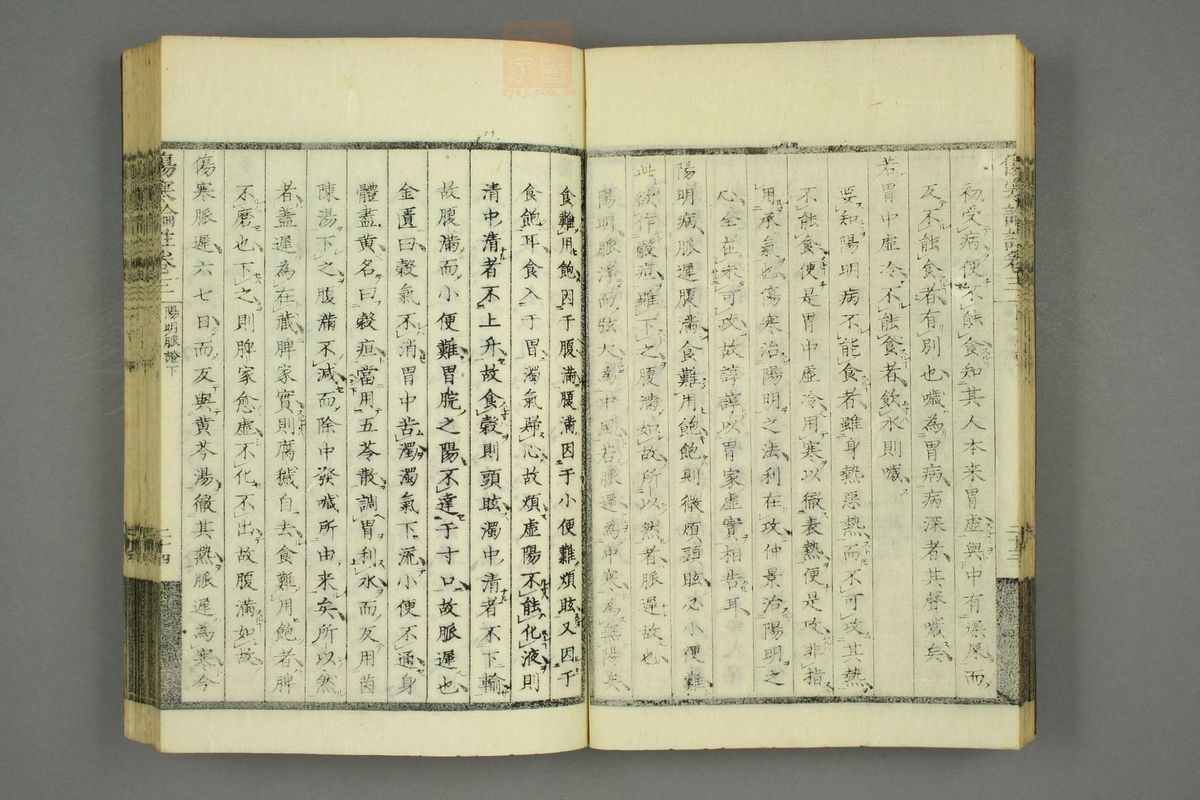 初受病便不能食知其人本来胃虚與中有燥尿而
反不能食者有別也噦為胃病病深者其聲噦矣
若胃中虚冷不能食者飲水則噦
要知陽明病不能食者雖身熱惡熱而不可攻其熱
不能食便是胃中虚冷用寒以徹表熱便是攻非指
用承氣也傷寒治陽明之法利在攻仲景治陽明之
心全在未可攻故諄諄以胃家虚實相告耳
陽明病脈遲腹滿食難用飽飽則微煩頭眩必小便難
此欲作穀疸雖下之腹滿如故所以然者脈遲故也
陽明脈浮而弦大為中風若脈遲為中寒為無陽矣
食難用飽因于腹滿腹滿因于小便難煩眩又因于
食飽耳食入于胃濁氣歸心故煩虚陽不能化液則
清中清者不上升故食穀則頭眩濁中清者不下輸
故腹滿而小便難胃脘之陽不達于寸口故脈遲也
金匱曰穀氣不消胃中苦濁濁氣下流小便不通身
體盡黄名曰穀疸當用五苓散調胃利水而反用茵
陳湯下之腹滿不減而除中發噦所由来矣所以然
者蓋遲為在藏脾家實則腐穢自去食難用飽者脾
不磨也下之則脾家愈虚不化不出故腹滿如故
傷寒脈遲六七日而反與黄芩湯徹其熱脈遲為寒今
陽明脈證下